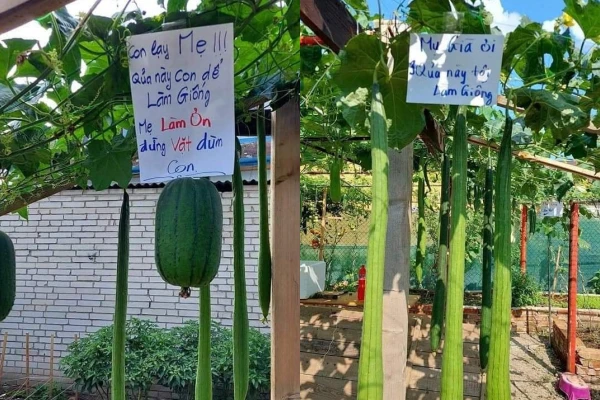 Con lạy Mẹ !!!
Qủa này Con để
Làm Giống
Mẹ Làm Ơn
đừng Vặt dùm
Con
Mụ Già ơi
Qủa này tôi
Làm Giống